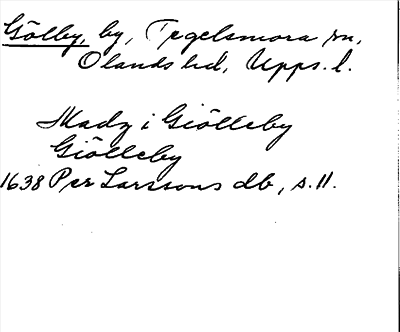 Gölby, by, Tegelsmora sn,
Olands hd, Upps. l.
Madz i Giölleby
Giölleby
1638 Per Larssons db, s. 11.